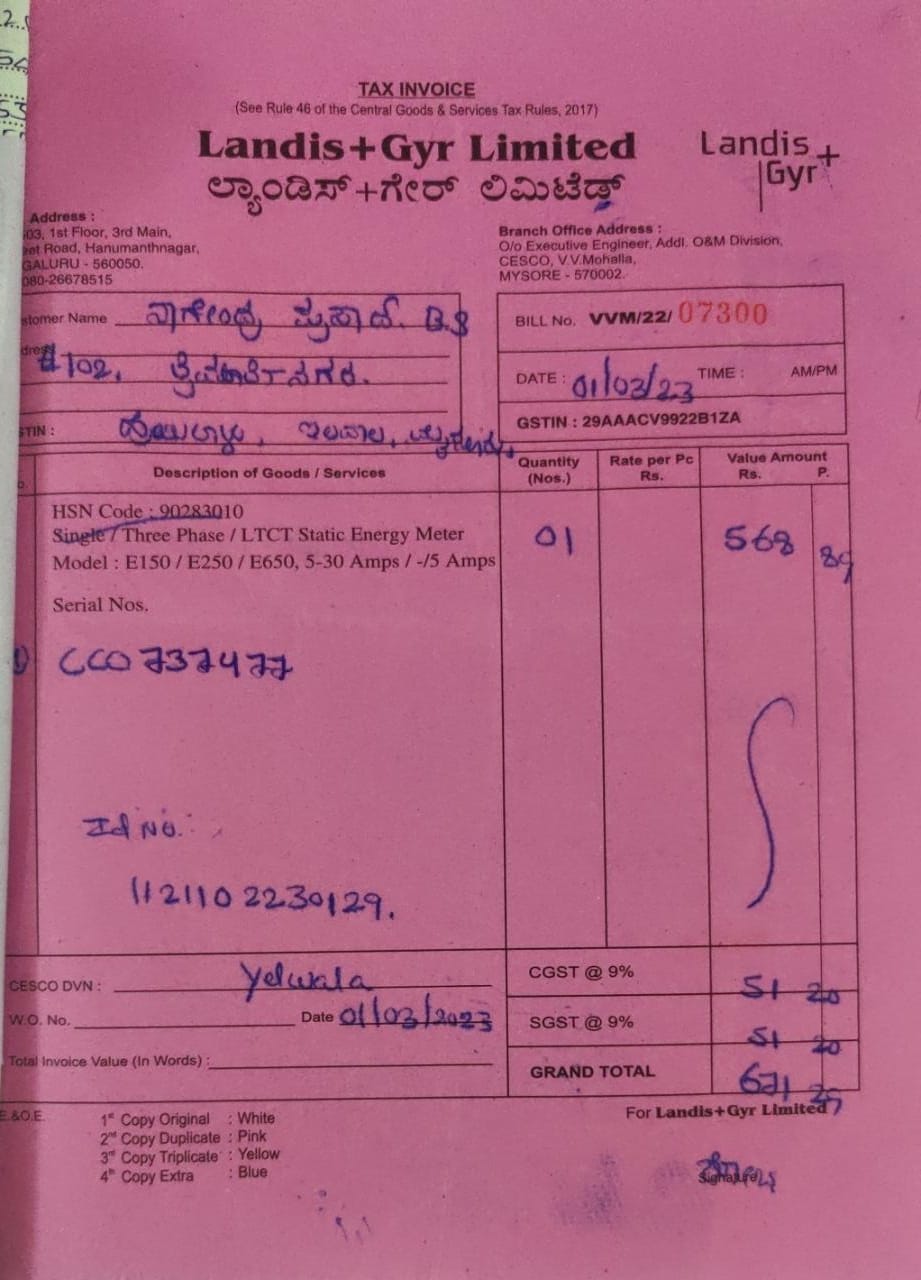 TAX INVOICE
(See Rule 46 of the Central Goods & Services Tax Rules, 2017)
Landis+Gyr Limited
ಲ್ಯಾಂಡಿಸ್+ಗೇರ್ ಲಿಮಿಟೆಡ್
Landis+
Gyr
Address :
03, 1st Floor, 3rd Main,
Road, Hanumanthnagar,
GALURU - 560050.
080-26678515
Branch Office Address :
O/o Executive Engineer, Addl. O&M Division,
CESCO, V.V.Mohalla,
MYSORE - 570002.
stomer Name ನಾಗೇಂದ್ರ ಪ್ರಸಾದ್. B.S
#102, ತ್ರಿಮೂರ್ತಿನಗರ.
TIN : ಇಲವಾಲ,
BILL No. VVM/22/ 07300
DATE : 01/03/23 TIME : AM/PM
GSTIN : 29AAACV9922B1ZA
Description of Goods / Services
Quantity (Nos.)
Rate per Pc Rs.
Value Amount Rs. P.
HSN Code : 90283010
Single / Three Phase / LTCT Static Energy Meter 01 568 89
Model : E150 / E250 / E650, 5-30 Amps / -/5 Amps
Serial Nos.
1) CC0737477
Id No.
1121102230129.
CESCO DVN : Yelwala
W.O. No. Date 01/03/2023
Total Invoice Value (In Words) :
CGST @ 9% 51 20
SGST @ 9% 51 20
GRAND TOTAL 671
E.&O.E.
1st Copy Original : White
2nd Copy Duplicate : Pink
3rd Copy Triplicate : Yellow
4th Copy Extra : Blue
For Landis+Gyr Limited
Signature